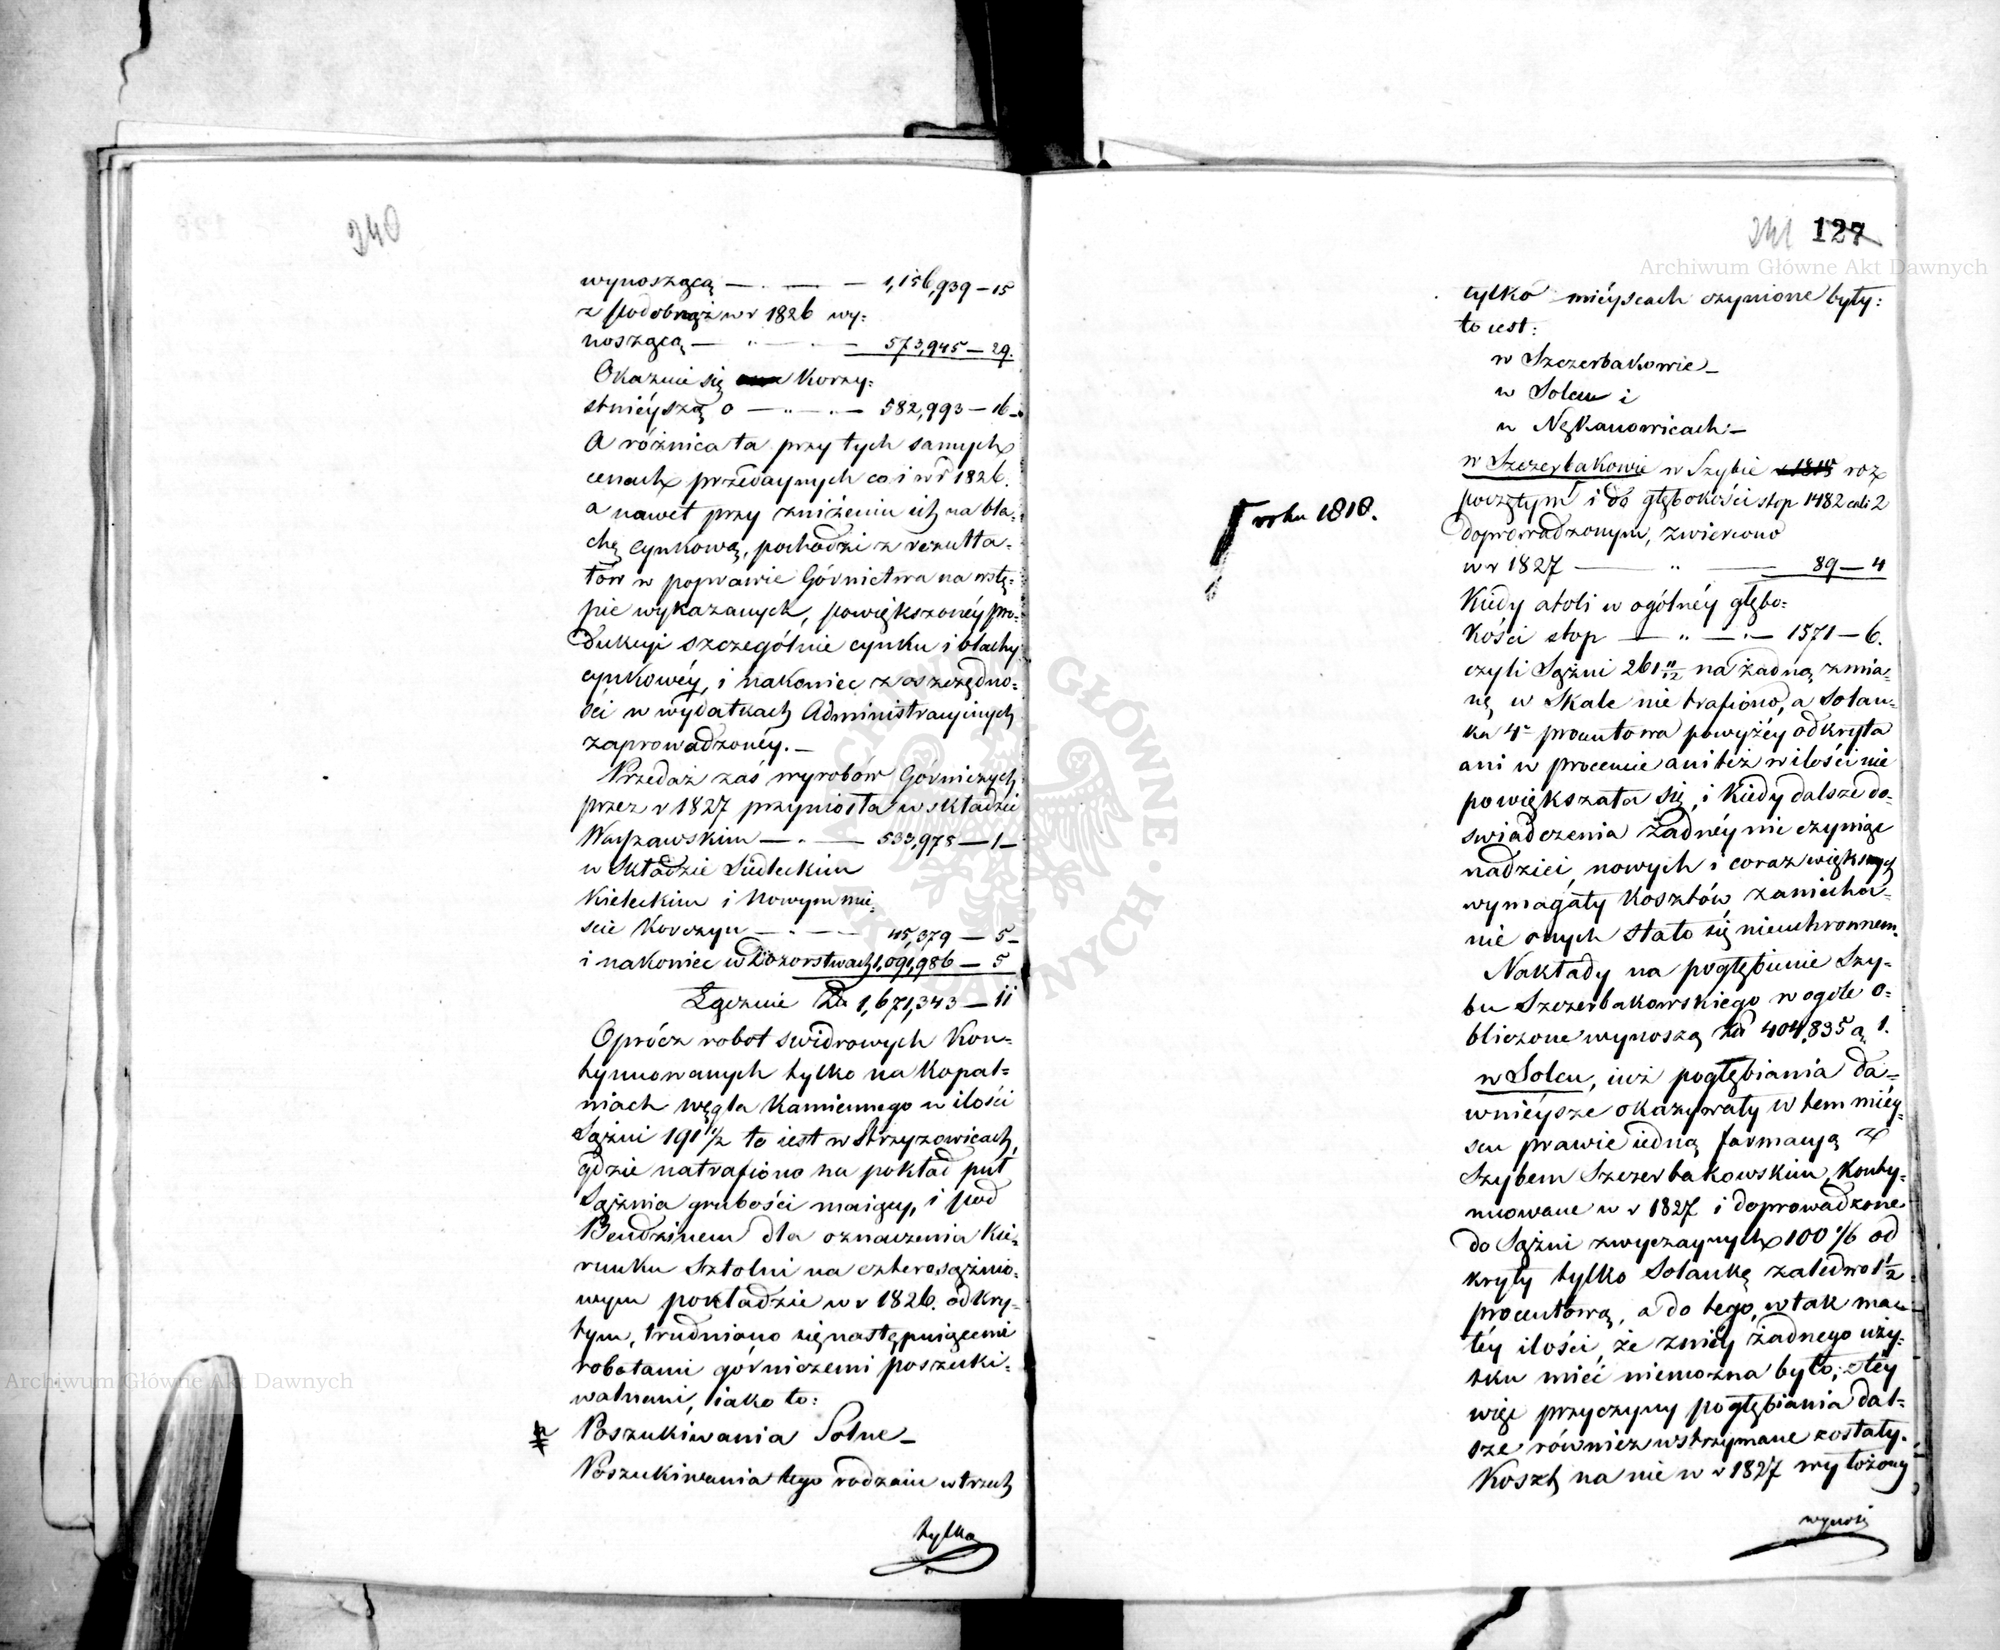 240
wynoszącą — . — — 1,156,939 — 15
z podobnąż w r 1826 wy:
noszącą — .. — . — 573,945 — 29.
Okazuie się korzy:
stnieyszą o — .. — .. — 582,993 — 16 —
A różnica ta przy tych samych
cenach przedaynych co i w r 1826.
a nawet przy zniżeniu ich na bla:
chę cynkową, pochodzi z rezulta-
tów w poprawie Górnictwa na wstę:
pie wykazanych, powiększoney pro-
dukcji szczególnie cynku i blachy
cynkowéy, i nakoniec z oszczędno:
ści w wydatkach Administracyinych
zaprowadzonéy. —
Przedaż zaś wyrobów Górniczych
przez r 1827 przyniosła w składzie
Warszawskim — . — 533,978 — 1 —
w Składzie Siedleckim
Kieleckim i Nowym mie:
ście Korczyn — . — — 45,379 — 5 —
i nakoniec w Dozorstwach 1,091,986 — 5
Łącznie Zł 1,671,343 — 11
Oprócz robot swidrowych kon=
tynuowanych tylko na kopal=
niach węgla kamiennego w ilości
Sążni 191 1/2 to iest w Strzyzowicach
gdzie natrafiono na pokład puł
Sążnia grubości maiący, i pod
Bendzinem dla oznaczenia kie:
runku Sztolni na czterosążnio:
wym pokładzie w r 1826. odkry-
tym, trudniono się następuiącemi
robotami górniczemi poszuki=
walnemi, iako to:
Poszukiwania Solne —
Poszukiwania tego rodzaiu w trzech
tylko
241 127
tylko mieyscach czynione były:
to iest:
w Szczerbakowie —
w Solcu i
w Nękanowicach: —
w Szczerbakowie w Szybie 1818 roz
roku 1818.
poczętym i do głębokości stop 1482 cali 2
doprowadzonym, zwiercono
w r 1827 — .. — 89 — 4
Kiedy atoli w ogólnéy głębo:
kości stop — .. — .. — 1571 — 6.
czyli Sążni 261 11/12 na żadną zmia:
nę w Skale nie trafiono, a Solan:
ka 4 procentowa powyżéy odkryta
ani w procencie ani też w ilości nie
powiększała się, i kiedy dalsze do:
swiadczenia żadnéy nie czyniąc
nadziei, nowych i coraz większych
wymagały kosztów, zaniecha-
nie onych stało się nieuchronnem.
Nakłady na pogłębienie Szy-
bu Szczerbakowskiego w ogóle o:
bliczone wynoszą Zł 404,835 g 1.
w Solcu, iuż pogłębiania da=
wnieysze okazywały w tem miey-
scu prawie iedną formacyą z
Szybem Szczerbakowskim, konty-
nuowane w r 1827 i doprowadzone
do Sążni zwyczaynych 100 1/6 od
kryły tylko Solankę zaledwo 1 1/2
procentową, a do tego, w tak ma=
łéy ilości, że z niéy żadnego uży:
tku mieć niemożna było; z téy
więc przyczyny pogłębiania dal=
sze również wstrzymane zostały.
Koszt na nie w r 1827 wyłożony
wynosi
Archiwum Główne Akt Dawnych
Archiwum Główne Akt Dawnych
ARCHIWUM GŁÓWNE AKT DAWNYCH